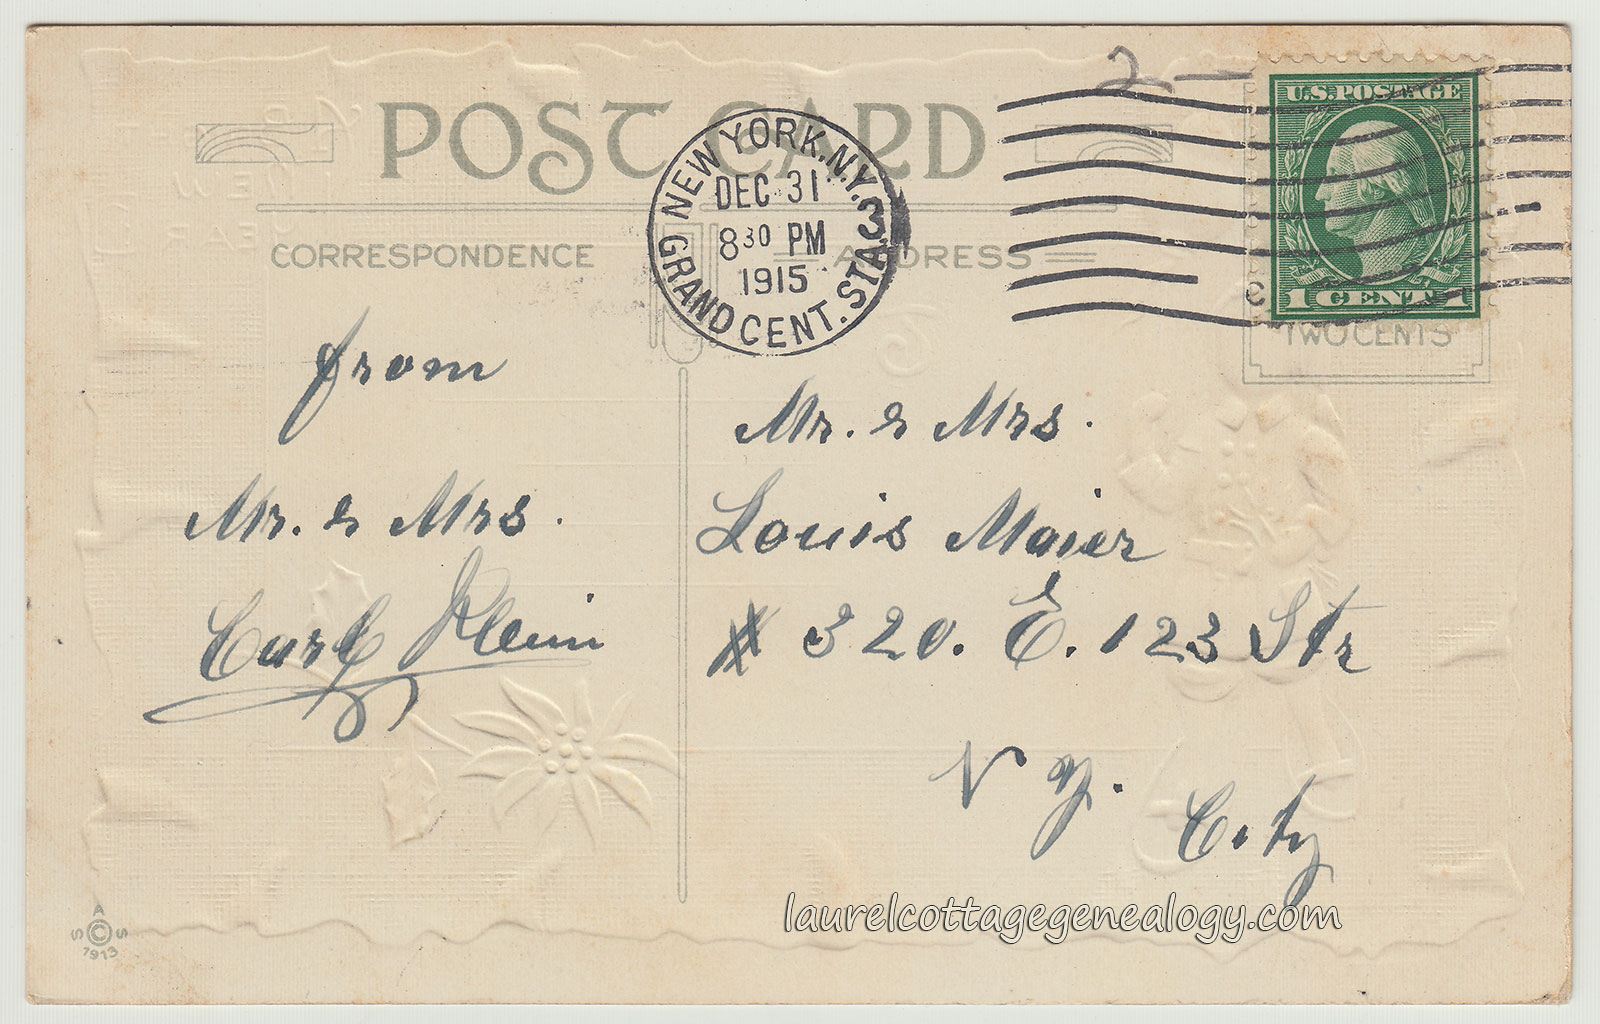 2 -
POST CARD
U.S. POSTAGE
1 CENT 1
TWO CENTS
NEW YORK, N.Y. 3
DEC 31
8 30 PM
1915
GRAND CENT. STA.
CORRESPONDENCE
ADDRESS
from
Mr. & Mrs.
Carl Klein
Mr. & Mrs.
Louis Maier
# 320. E. 123 Str
N Y.
City
A
S © S
1913
laurelcottagegenealogy.com